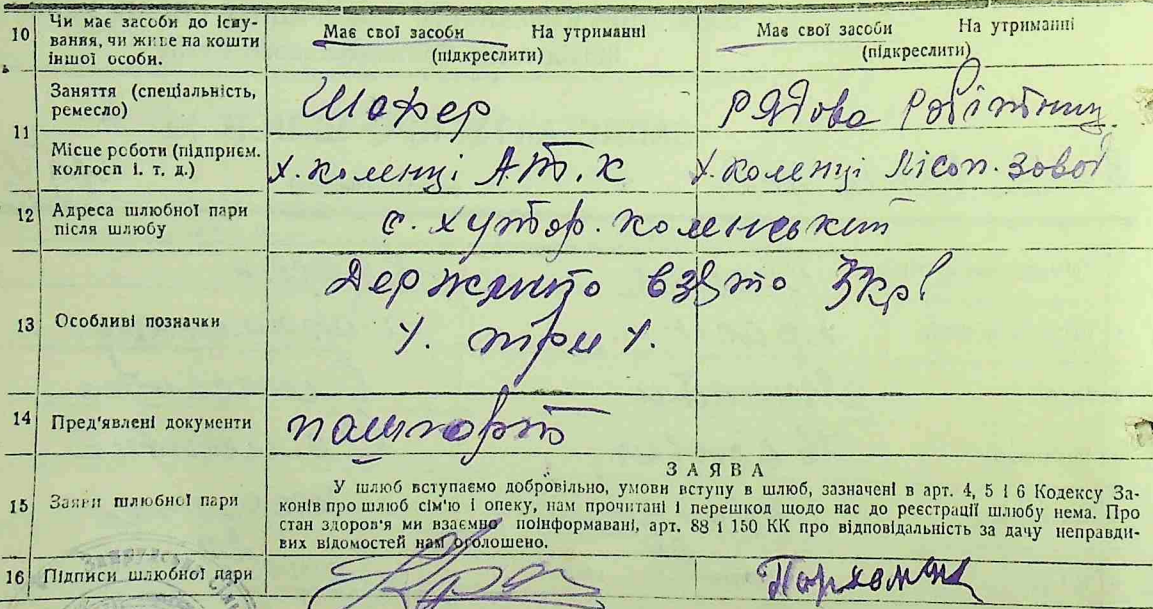 10 Чи має засоби до існу-
вання, чи живе на кошти
іншої особи.
Має свої засоби На утриманні
(підкреслити)
Має свої засоби На утриманні
(підкреслити)
11 Заняття (спеціальність,
ремесло)
Шофер
Рядова Робітниц
Місце роботи (підприєм.
колгосп і. т. д.)
Х. Коленці А.Т.К
Х. Коленці Лісоп. Зовоі
12 Адреса шлюбної пари
після шлюбу
с. Хутор. Коленський
13 Особливі позначки
Держмито взято 3кр.
три
14 Пред'явлені документи
пашпорт
15 Заяви шлюбної пари
ЗАЯВА
У шлюб вступаємо добровільно, умови вступу в шлюб, зазначені в арт. 4, 5 і 6 Кодексу За-
конів про шлюб сім'ю і опеку, нам прочитані і перешкод щодо нас до реєстрації шлюбу нема. Про
стан здоров'я ми взаємно поінформавані, арт. 88 і 150 КК про відповідальність за дачу неправди-
вих відомостей нам оголошено.
16 Підписи шлюбної пари